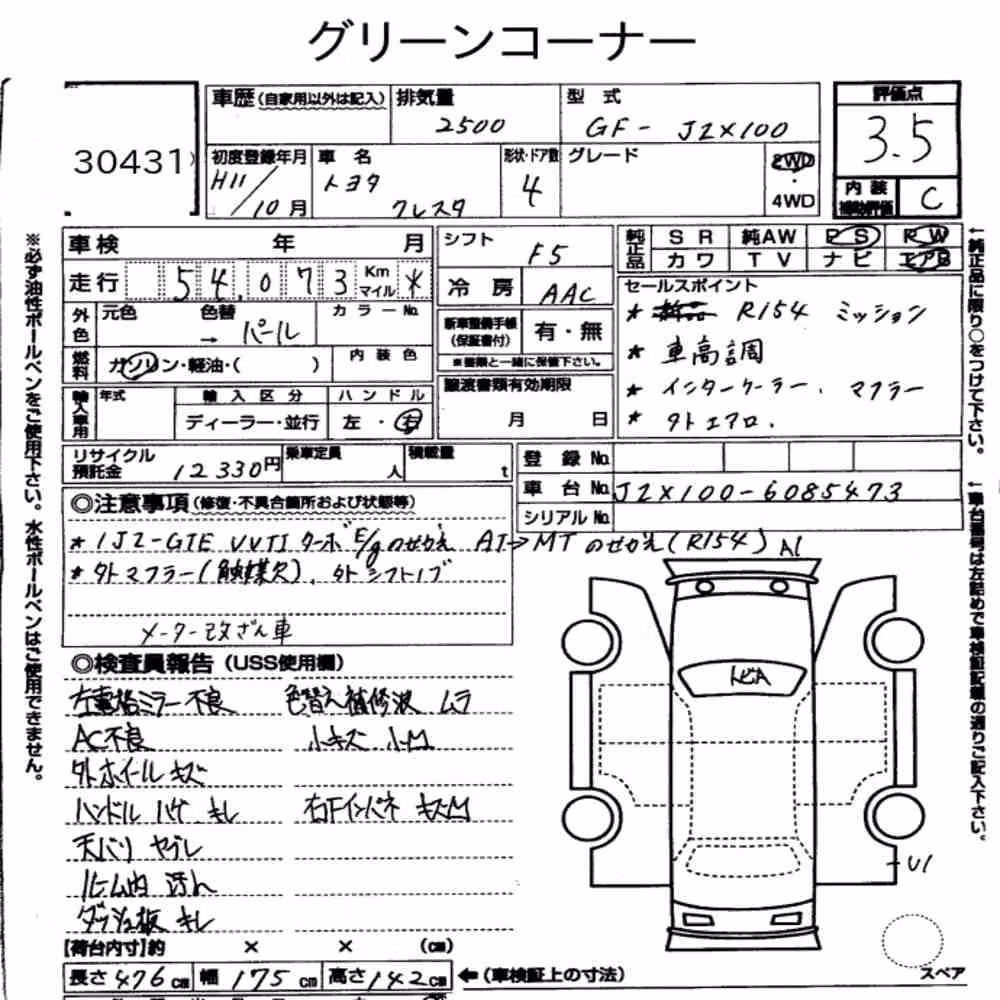 グリーンコーナー
30431
車歴(自家用以外は記入) 排気量 2500 型式 GF- JZX100 評価点 3.5
初度登録年月 H11/10月 車名 トヨタ クレスタ 形状・ドア数 4 グレード 2WD・4WD 内装補助評価 C
車検 年 月 シフト F5 純正品 SR 純AW PS PW カワ TV ナビ エアB
走行 54,073 Km マイル * 冷房 AAC
外色 元色 色替 → パール カラーNo. 新車整備手帳(保証書付) 有・無
※書類と一緒に保管下さい。
燃料 ガソリン・軽油・( ) 内装色 譲渡書類有効期限 月 日
輸入車用 年式 輸入区分 ディーラー・並行 ハンドル 左・右
セールスポイント
* R154 ミッション
* 車高調
* インタークーラー. マフラー
* 外エアロ.
リサイクル預託金 12330円 乗車定員 人 積載量 t 登録No.
車台No. JZX100-6085473
シリアルNo.
◎注意事項(修復・不具合箇所および状態等)
* 1JZ-GTE VVTI ターボE/gのせかえ AT→MTのせかえ(R154)
* 外マフラー(触媒欠). 外シフトノブ
メーター改ざん車
◎検査員報告(USS使用欄)
左電格ミラー不良 色替え補修波 ムラ
AC不良 小キズ 小M
外ホイールキズ
ハンドル ハゲ キレ 右Fインパネ キズM
天バリ ヤブレ
ルーム内 汚れ
ダッシュ板 キレ
【荷台内寸】約 × × (cm)
長さ476cm 幅175cm 高さ142cm ←(車検証上の寸法)
A1
トビA
U1
スペア
※必ず油性ボールペンをご使用下さい。水性ボールペンはご使用できません。
←純正品に限り○をつけて下さい。
←車台番号は左詰めで車検証記載の通りご記入下さい。